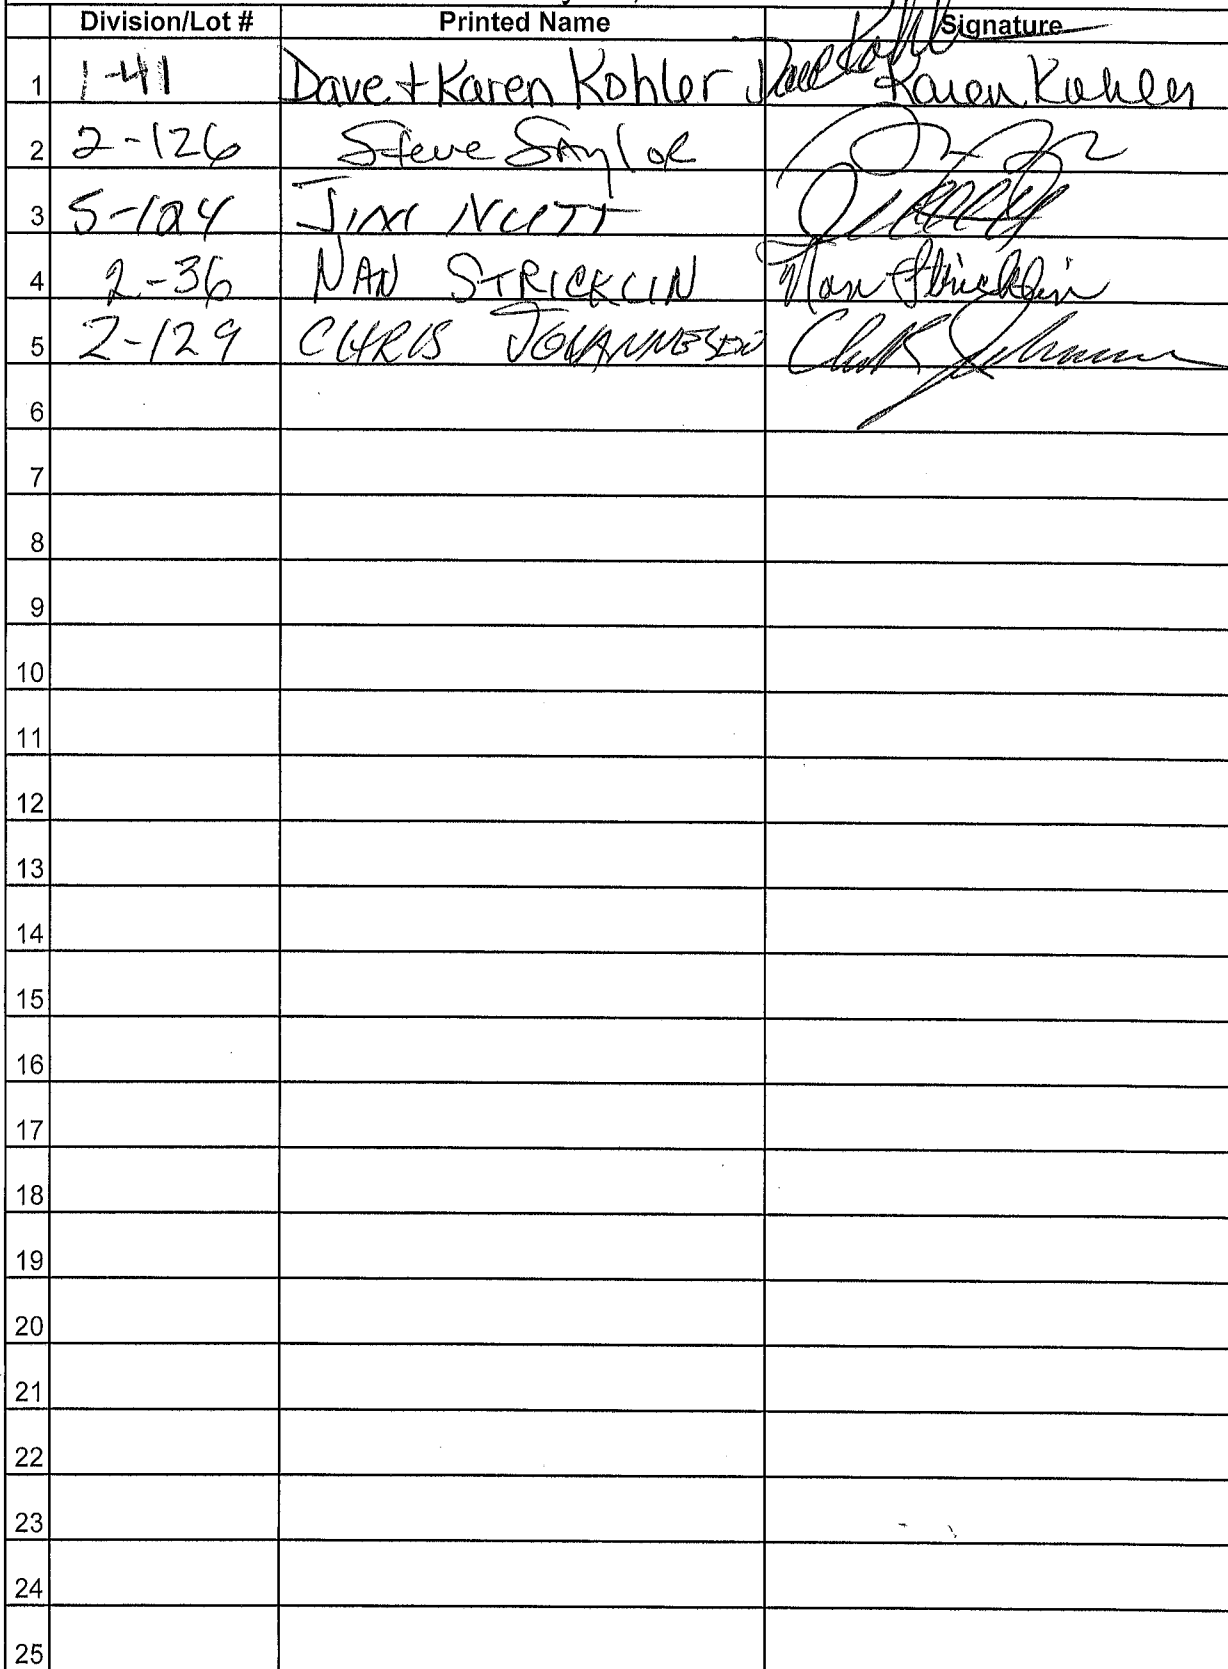 Division/Lot # Printed Name Signature
1 1-41 Dave + Karen Kohler Dave Kohler Karen Kohler
2 2-126 Steve Saylor
3 5-124 JIM NUTT
4 2-36 NAN STRICKLIN Nan Stricklin
5 2-129 CHRIS JOHANNESEN
6
7
8
9
10
11
12
13
14
15
16
17
18
19
20
21
22
23
24
25